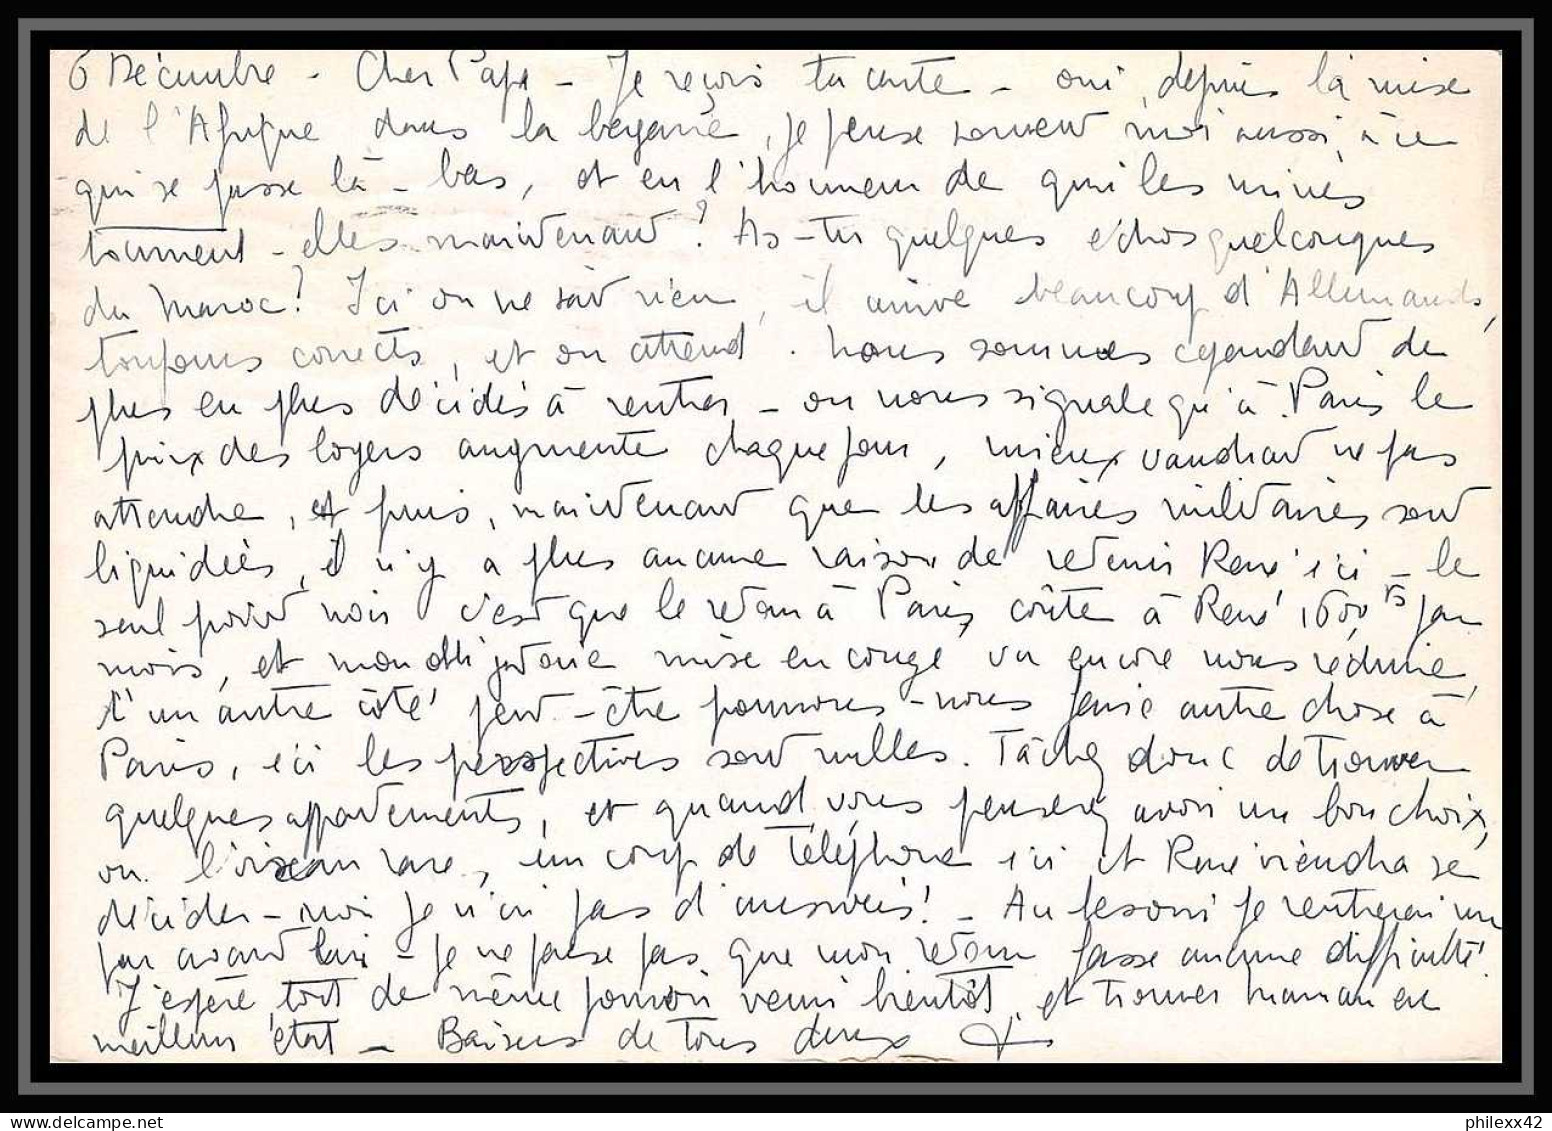 6 Décembre - Cher Papa - Je reçois ta carte - oui, depuis la mise
de l'Afrique dans la bagarre, je pense souvent moi aussi, à ce
qui se passe là-bas, et en l'honneur de qui les mines
tournent-elles maintenant? As-tu quelques échos quelconques
du Maroc? Ici on ne sait rien, il arrive beaucoup d'Allemands,
toujours corrects, et on attend. Nous sommes cependant de
plus en plus décidés à rentrer - on nous signale qu'à Paris le
prix des loyers augmente chaque jour, mieux vaudrait ne pas
attendre, et puis, maintenant que les affaires militaires sont
liquidées, il n'y a plus aucune raison de retenir René ici - le
seul point noir c'est que le retour à Paris coûte à René 1600 frs par
mois, et mon obligatoire mise en congé va encore nous réduire,
d'un autre côté peut-être pourrons-nous faire autre chose à
Paris, ici les perspectives sont nulles. Tâchez donc de trouver
quelques appartements, et quand vous penserez avoir un bon choix,
ou l'oiseau rare, un coup de Téléphone ici et René viendra se
décider - moi je n'ai pas d'ausweis! - Au besoin je rentrerai un
jour avant lui - je ne pense pas que mon retour fasse aucune difficulté.
J'espère tout de même pouvoir venir bientôt, et trouver maman en
meilleur état - Baisers de tous deux
philexx42